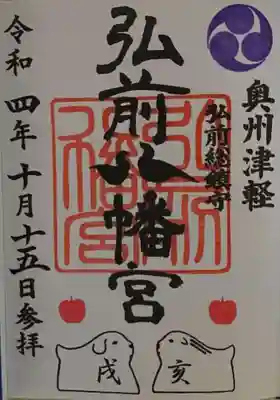 奥州津軽
弘前総鎮守
弘前八幡宮
弘前八幡宮
令和四年十月十五日参拝
戌
亥